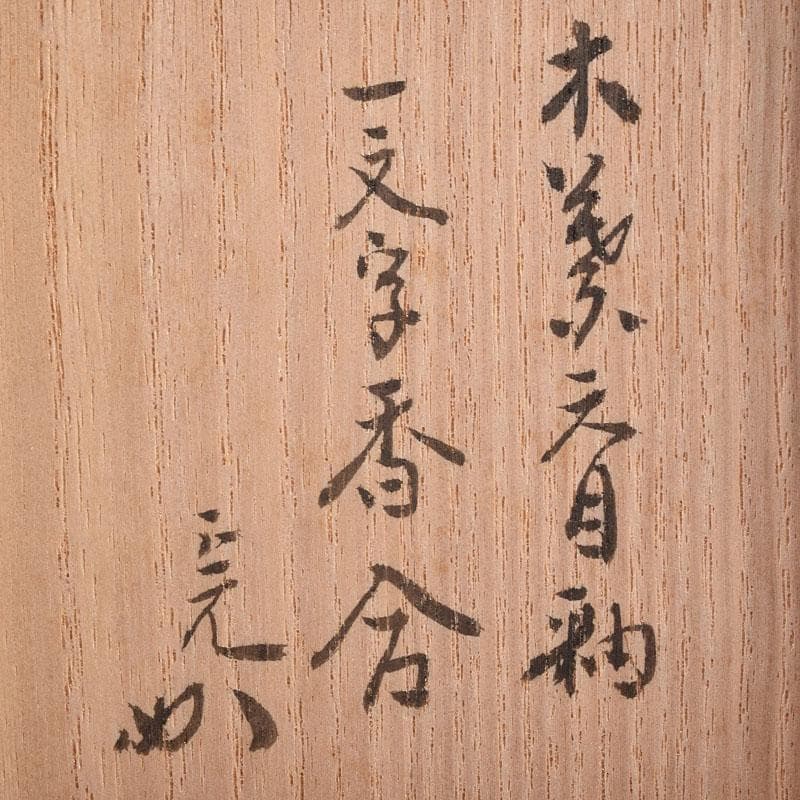 木葉天目釉
一文字香合
正元